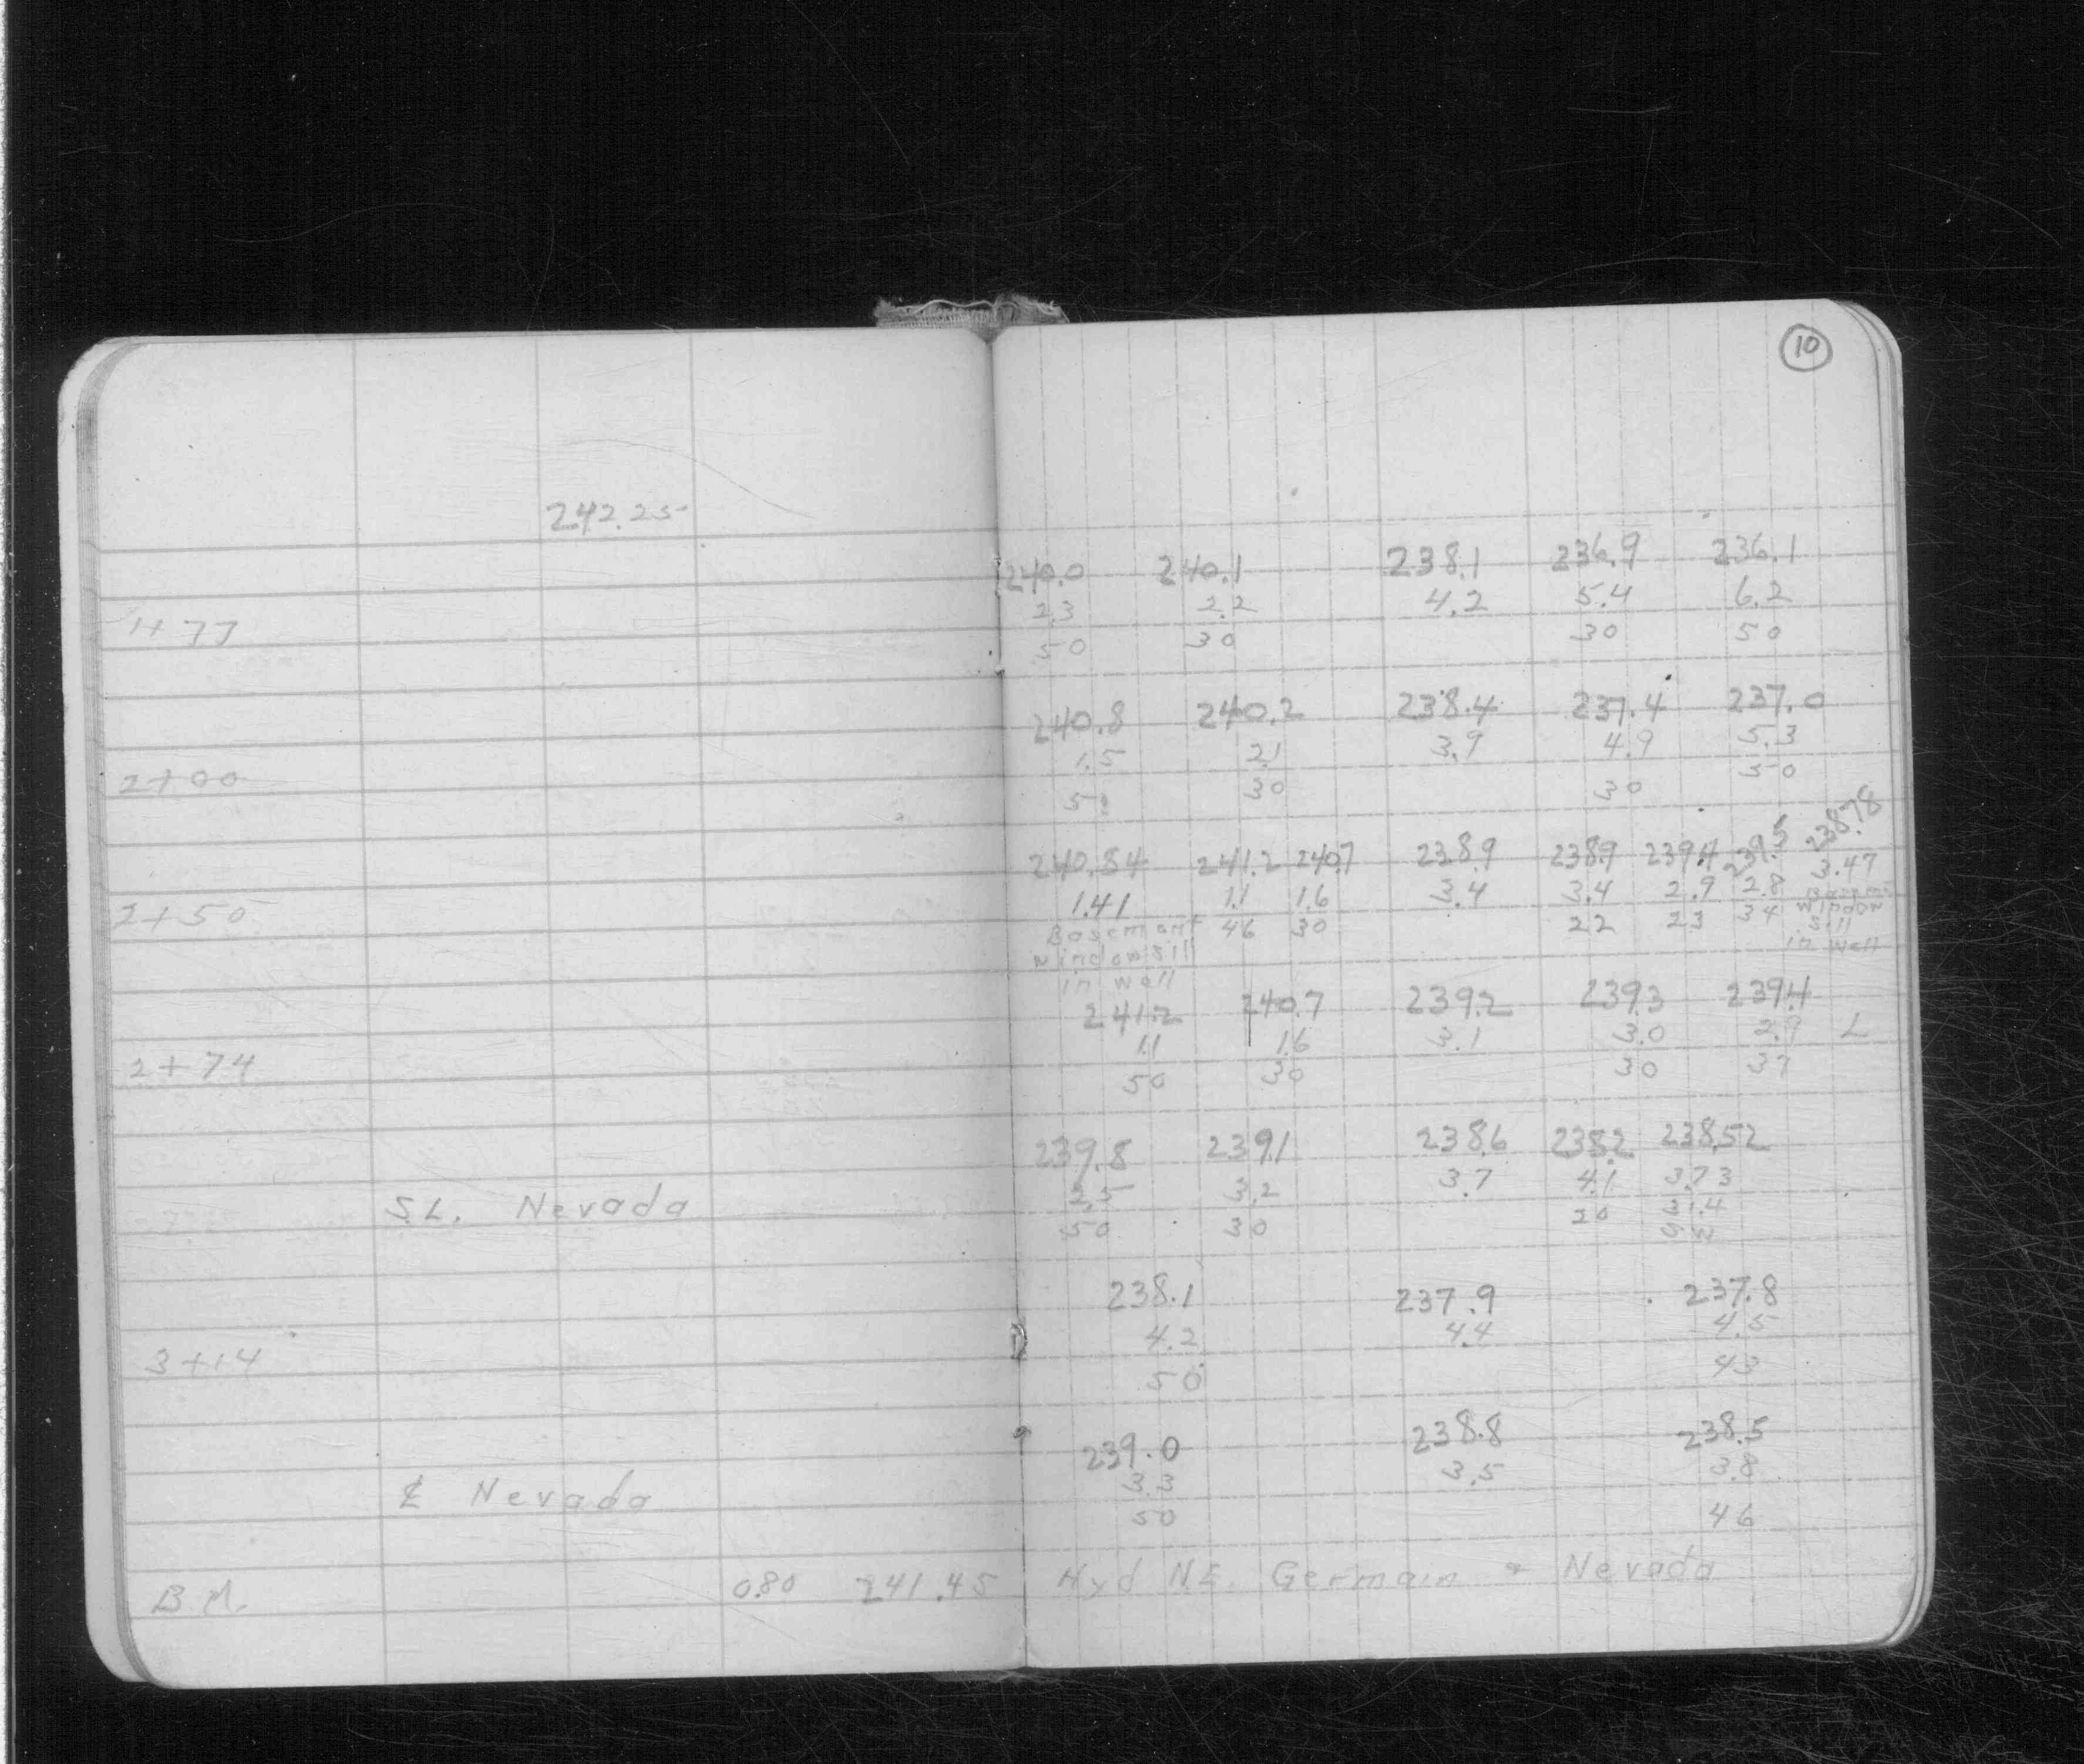 10
242.25
240.0 240.1 238.1 236.9 236.1
2.3 2.2 4.2 5.4 6.2
1+77 50 30 30 50
240.8 240.2 238.4 237.4 237.0
1.5 2.1 3.9 4.9 5.3
2+00 30 30 50
240.84 241.2 240.7 238.9 238.9 239.4 239.5 238.78
1.41 1.1 1.6 3.4 3.4 2.9 2.8 3.47
2+50 Basement 46 30 22 23 34 window
window sill sill
in well in well
241.2 240.7 239.2 239.3 239.4
1.1 1.6 3.1 3.0 2.9 L
2+74 50 30 30 37
239.8 239.1 238.6 238.2 238.52
2.5 3.2 3.7 4.1 3.73
S.L. Nevada 50 30 20 31.4
S.W
238.1 237.9 237.8
4.2 4.4 4.5
3+14 50 43
239.0 238.8 238.5
3.3 3.5 3.8
₵ Nevada 50 46
B.M. 0.80 241.45 Hyd N.E. Germain & Nevada